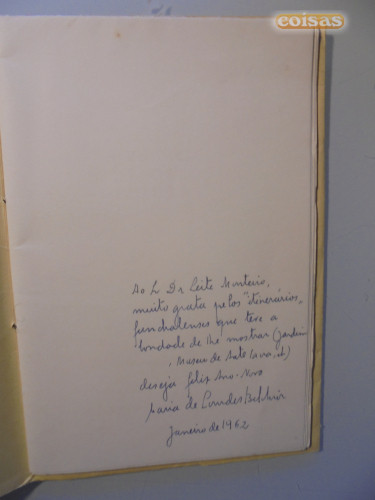 coisas
Ao S. Dr Leite Monteiro,
muito grata pelos "itinerários"
funchalenses que teve a
bondade de lhe mostrar (Jardim
, Museu de Arte Sacra, etc)
deseja feliz Ano-Novo
Maria de Lourdes Belchior
Janeiro de 1962